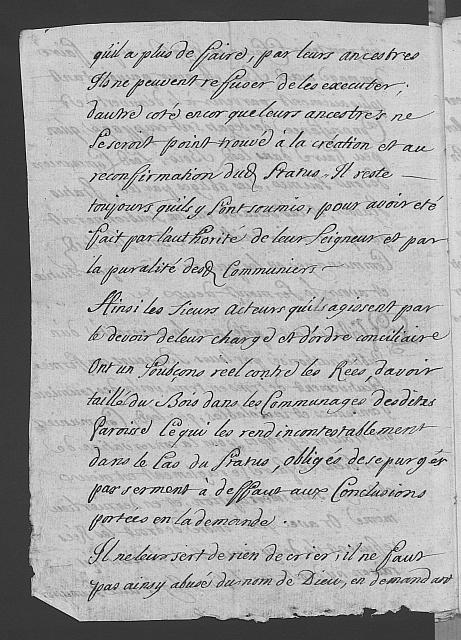 qu'il a plus de ffaire, par leurs ancestres
Ils ne peuvent reffuser de les executer;
d'autre coté encor que leurs ancestres ne
se seroit point trouvé à la création et au
reconfirmation dud Status, Il reste
toujours qu'ils y sont soumis, pour avoir eté
ffait par l'authorité de leur Seigneur et par
la puralité desd Communiers
Ainsi les Sieurs Acteurs qu'ils agissent par
le devoir de leur charge et d'ordre conciliaire
Ont un soubçons reel contre les Rées, d'avoir
taillé du Bois dans les Communages desdites
Paroise Ce qui les rend incontestablement
dans le Cas du Status, obligés de se purgér
par serment à deffaut aux Conclusions
portées en la demande.
Il ne leur sert de rien de crier; il ne ffaut
pas ainsy abusé du nom de Dieu, en demandant